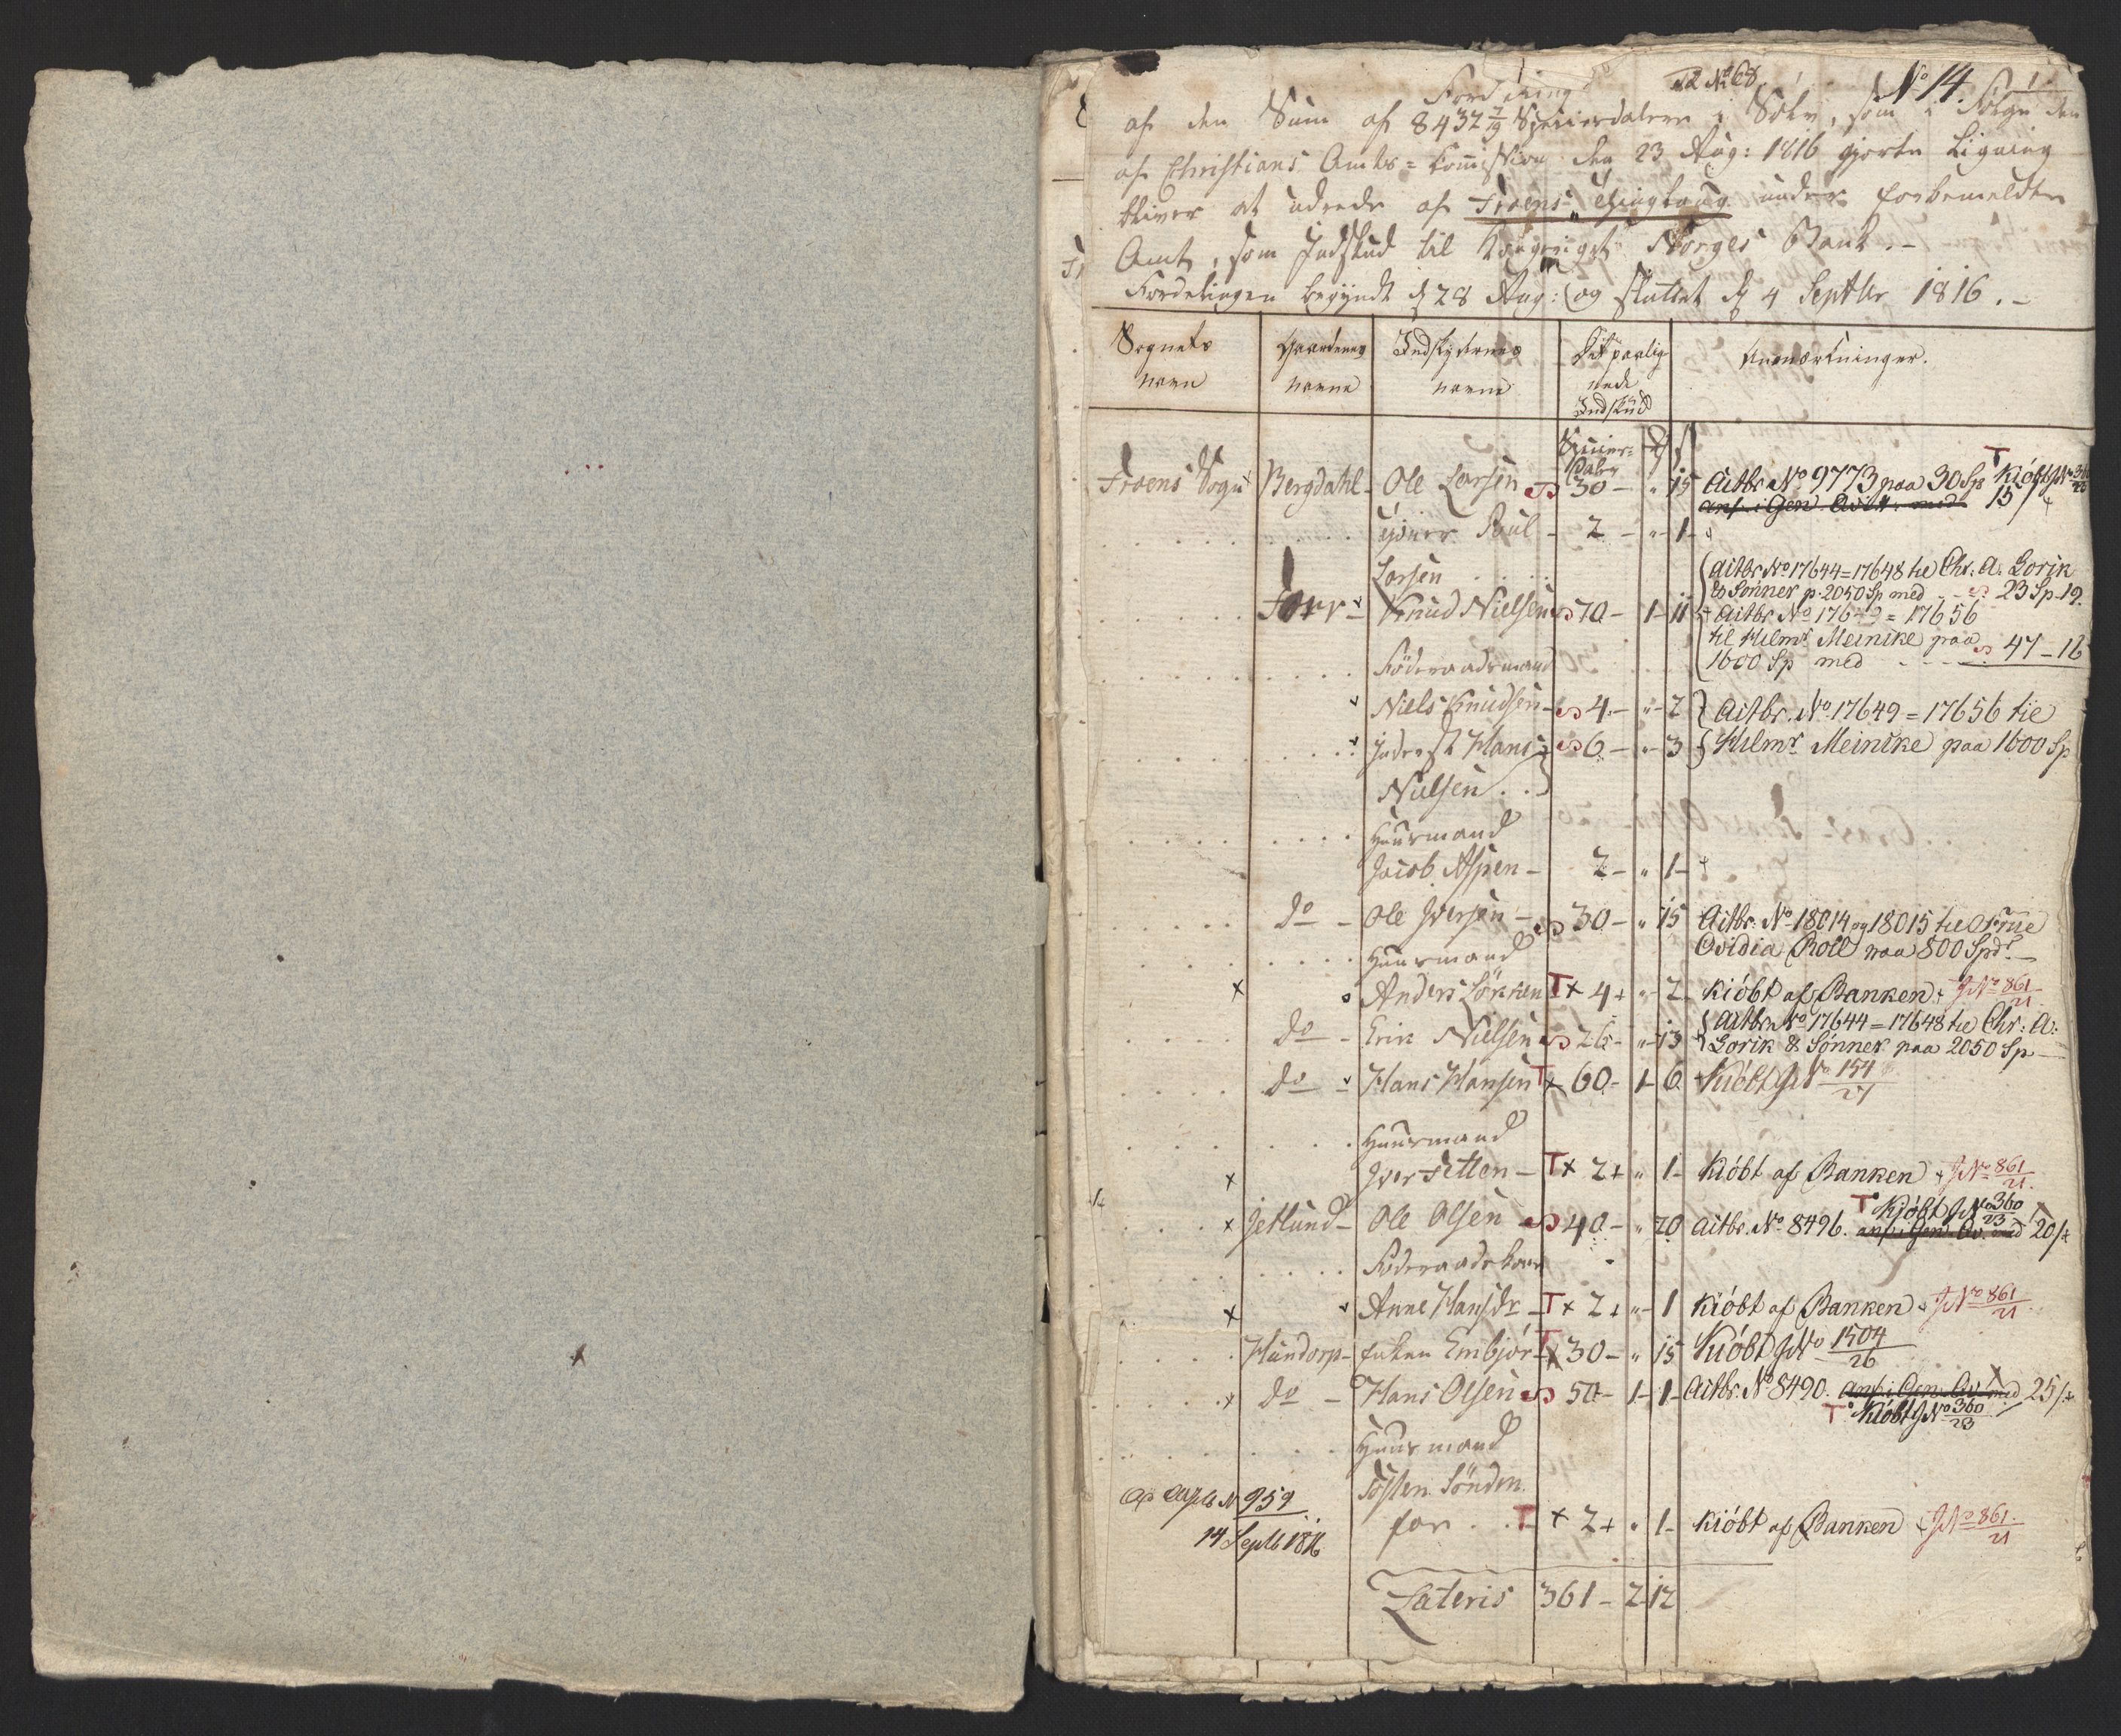 T2 No 68.
No 14. 1
Fordeling
af den Sum af 8432 7/9 Speciesdaler i Sølv, som i Følge den
af Christians Amts=Commission den 23 Aug: 1816 gjorte Ligning
bliver at udrede af Froens Thinglaug under forbemeldte
Amt, som Indskud til Kongeriget Norges Bank.-
Fordelingen begyndt d 28 Aug: og sluttet d 4 Septbr 1816.-
Sognets navn | Gaardenes navne | Indskydernes navne | Det paalignede Indskud | Anmærkninger.
Species= Daler | |
Froens Sogn | Bergdahl - | Ole Larsen | 30 - | " | 15 | Actbr No 9773 paa 30 Sp T Kióbt JNo 360/23
ans. i Gen. med 15 s
Poul - | 2 - | " | 1 -
Larsen
Forr - | Knud Nielsen | 70 - | 1 - | 11 | Actbr No 17644=17648 til Chr. A. Lorik
& Sønner p. 2050 Sp med - - 23 Sp - 19.
Actbr. No 17649 = 17656
til Hilmr Meincke paa
1600 Sp med - - - 47 - 16
Föderaadsmand
Niels Knudsen - | 4 - | " | 2 | Actbr. No 17649=17656 til
Inderst Hans | 6 - | " | 3 | Hilmr Meincke paa 1600 Sp
Nielsen . .
Huusmand
Jacob Aspen - | 2 - | " | 1 -
do - | Ole Iversen - | 30 - | " | 15 | Actbr. No 18014 og 18015 til Frue
Huusmand | Ovidia Roll paa 800 Spd.
x | Anders Løkken | T x 4 + | " | 2 | Kióbt af Banken JNo 861/21
do - | Erik Nielsen | 26 - | " | 13 | Actbr No 17644=17648 til Chr: A:
Lorik & Sønner paa 2050 Sp
do - | Hans Hansen | T x 60 - | 1 - | 6 | Kióbt JNo 154/27
Huusmand
x | Iver Fetten - | T x 2 + | " | 1 - | Kióbt af Banken JNo 861/21.
x Jetlund - | Ole Olsen - | 40 - | " | 20 | Actbr. No 8496. T Kióbt JNo 360/23 ans. i Gen. med 20 s
Föderaadskone
x | Anne Hansdr - | T x 2 + | " | 1 | Kióbt af Banken JNo 861/21
Hundorp - | Enken Embjór | T x 30 - | " | 15 | Kióbt JNo 1504/26
x do - | Hans Olsen | 50 - | 1 - | 1 - | Actbr. No 8490. ans. i Gen. med 25 s
T Kióbt JNo 360/23
Huusmand
No 959 | Tosten Sönden
14 Septb 1816 | for . . | T x 2 + | " | 1 - | Kióbt af Banken JNo 861/21
Lateris | 361 - | 2 - | 12